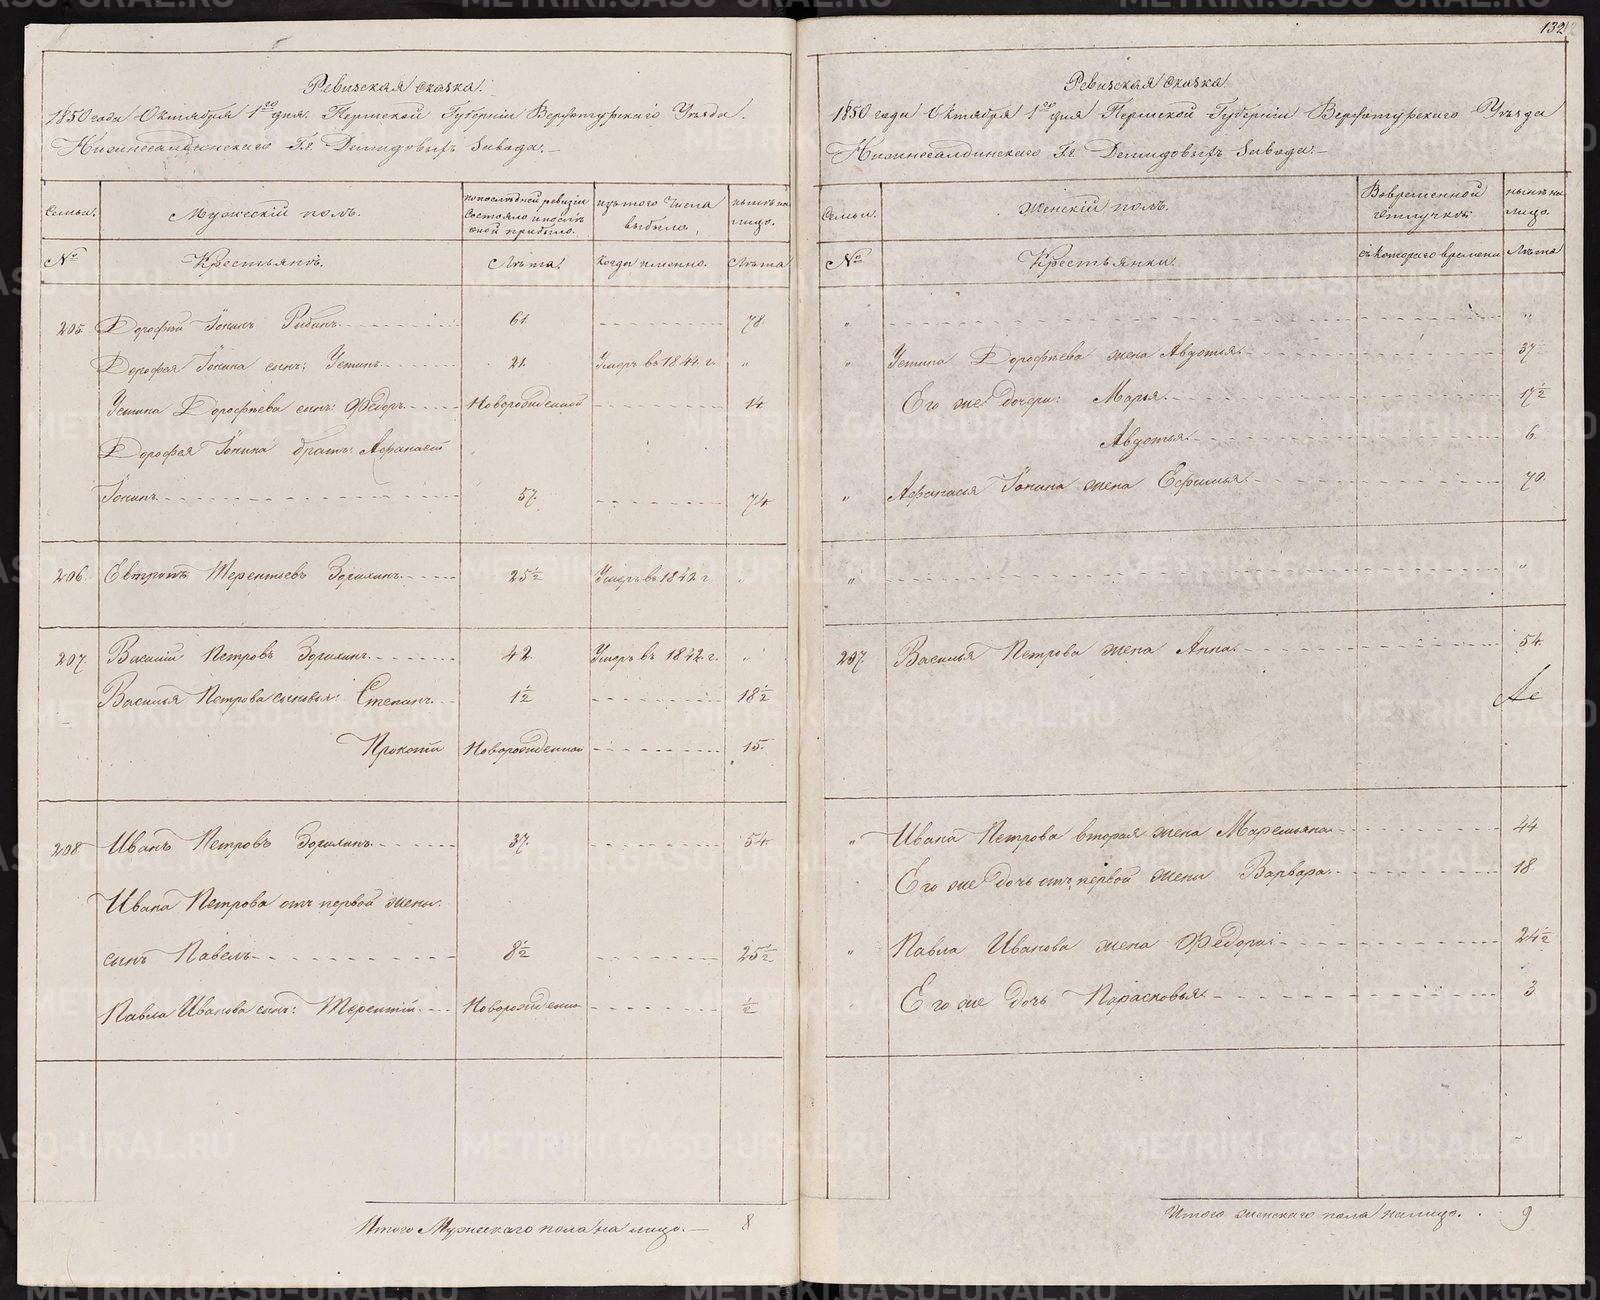 132
Ревизская сказка.
1850 года Октября 1го дня. Пермской Губерніи Верхотурскаго Уѣзда.
Нижнесалдинскаго Гг. Демидовыхъ Завода.
Семьи.
Мужескій полъ.
по последней ревизіи состояло и после оной прибыло.
изъ того числа выбыло.
нынѣ на лицо.
№
Крестьянъ.
Лѣта.
Когда именно.
Лѣта
205. Дорофей Іонинъ 61. 78
Дорофея Іонина сынъ: Устинъ 21. Умеръ въ 1844. г. "
Устина Дорофѣева сынъ: Ѳедоръ Новорожденной 14
Дорофея Іонина братъ: Афанасій
Іонинъ 57. 74
206. Терентьевъ 25½ Умеръ въ 1842 г. "
207. Василій Петровъ 42. Умеръ въ 1842. г. "
Василья Петрова сыновья: Степанъ 1½ 18½
Прокопій Новорожденной 15.
208 Иванъ Петровъ 37. 54
Ивана Петрова отъ первой жены
сынъ Павелъ 8½ 25½
Павла Иванова сынъ: Терентій Новорожденной ½
Итого Мужескаго пола на лицо. 8
Ревизская сказка
1850 года Октября 1го дня Пермской Губерніи Верхотурскаго Уѣзда
Нижнесалдинскаго Гг. Демидовыхъ Завода.
Семьи.
Женскій полъ.
Во временной отлучкѣ
нынѣ на лицо.
№
Крестьянки.
съ котораго времени
Лѣта
" "
" Устина Дорофѣева жена Авдотья 37
Его же дочери: Марья 17½
Авдотья 6.
" Афанасья Іонина жена Ефимья 70.
" "
207. Василья Петрова жена Анна 54.
" Ивана Петрова вторая жена Маремьяна 44
Его же дочь отъ первой жены Варвара 18
" Павла Иванова жена Ѳедора 24½
Его же дочь Парасковья 3
Итого женскаго пола на лицо. 9
METRIKI.GASO-URAL.RU